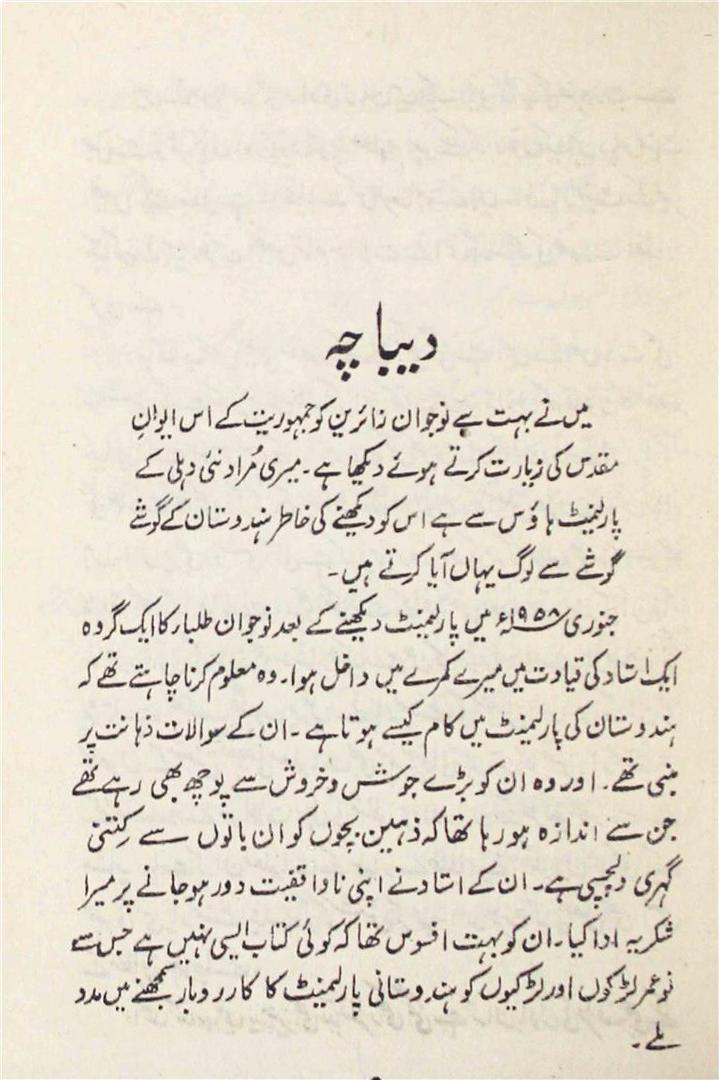 دیباچہ
میں نے بہت سے نوجوان زائرین کو جمہوریت کے اس ایوانِ
مقدس کی زیارت کرتے ہوئے دیکھا ہے۔ میری مُراد نئی دہلی کے
پارلیمنٹ ہاؤس سے ہے اس کو دیکھنے کی خاطر ہندوستان کے گوشے
گوشے سے لوگ یہاں آیا کرتے ہیں۔
جنوری ۱۹۵۸ء میں پارلیمنٹ دیکھنے کے بعد نوجوان طلبار کا ایک گروہ
ایک استاد کی قیادت میں میرے کمرے میں داخل ہوا۔ وہ معلوم کرنا چاہتے تھے کہ
ہندوستان کی پارلیمنٹ میں کام کیسے ہوتا ہے۔ ان کے سوالات ذہانت پر
مبنی تھے۔ اور وہ ان کو بڑے جوش و خروش سے پوچھ بھی رہے تھے
جن سے اندازہ ہو رہا تھا کہ ذہین بچوں کو ان باتوں سے کِتنی
گہری دلچسپی ہے۔ ان کے استاد نے اپنی ناواقفیت دور ہو جانے پر میرا
شکریہ ادا کیا۔ ان کو بہت افسوس تھا کہ کوئی کتاب ایسی نہیں ہے جس سے
نوعمر لڑکوں اور لڑکیوں کو ہندوستانی پارلیمنٹ کا کاروبار سمجھنے میں مدد
ملے۔